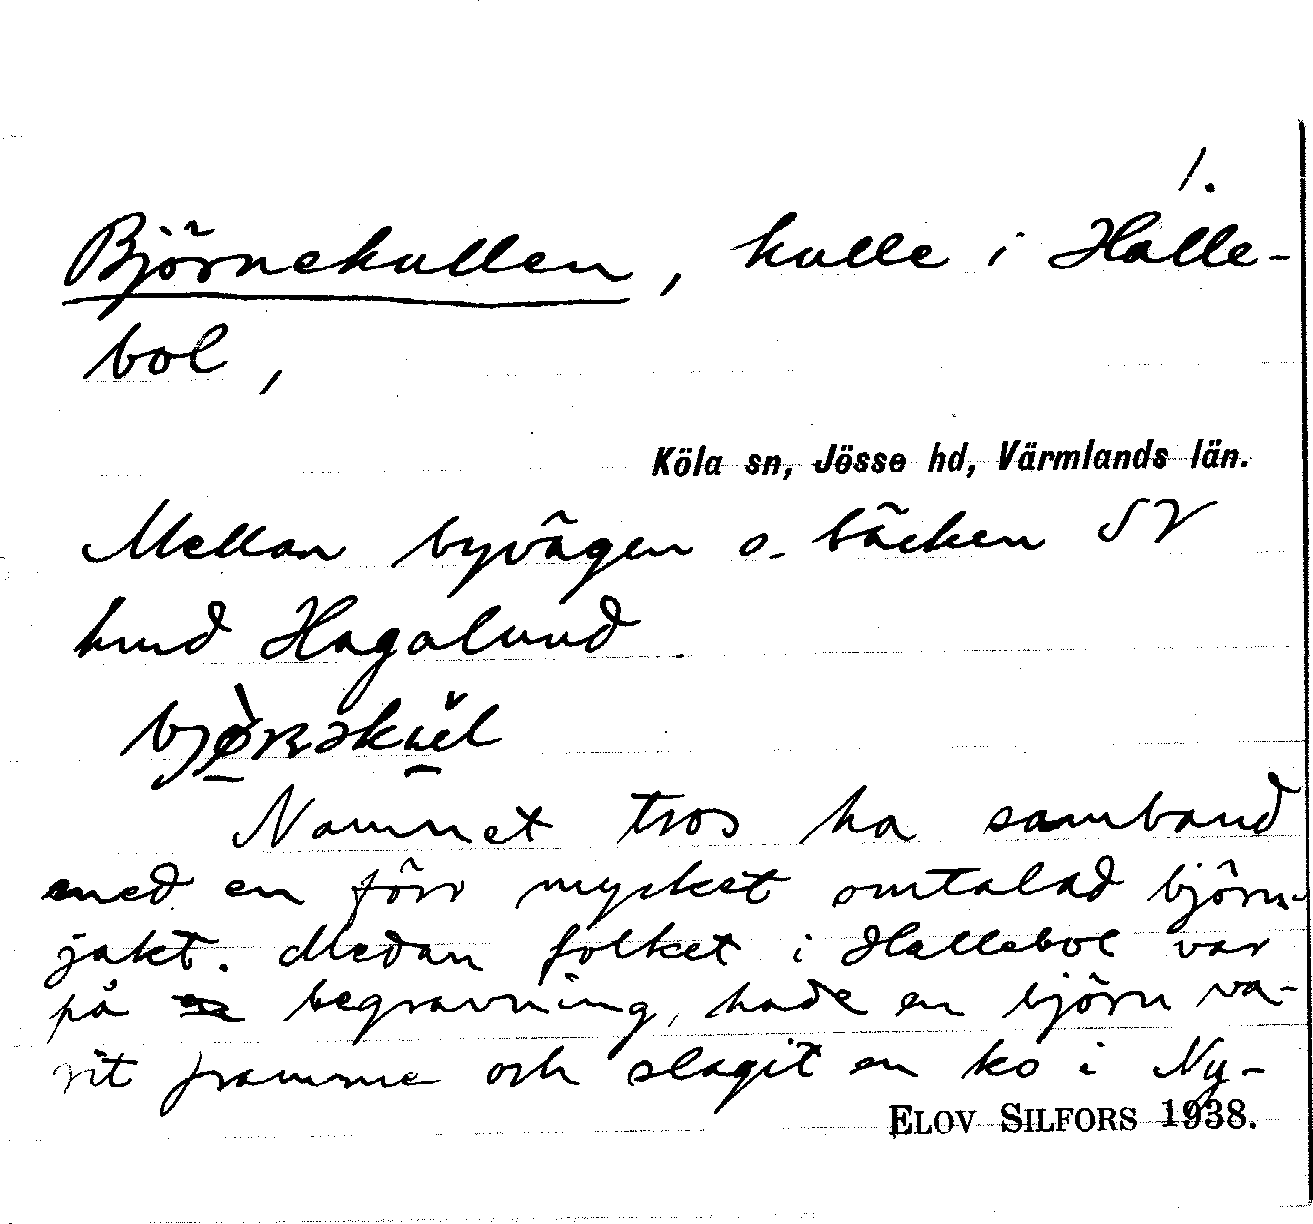 1.
Björnekullen, kulle i Halle-
bol,
Köla sn, Jösse hd, Värmlands län.
Mellan byvägen o. bäcken SV
hmd Hagalund.
Namnet tros ha samband
med en förr mycket omtalad björn-
jakt. Medan folket i Hallebol var
på begravning, hade en björn va-
rit framme och slagit en ko i Ny-
ELOV SILFORS 1938.